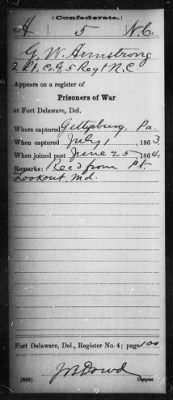 (Confederate.)
A 5 N.C.
G. W. Armstrong
Co. G, 5 Reg't N.C.
Appears on a register of
Prisoners of War
at Fort Delaware, Del.
Where captured Gettysburg, Pa.
When captured July 1, 1863.
When joined post June 25, 1864.
Remarks: Rec'd from Pt.
Lookout, Md.
Fort Delaware, Del., Register No. 4; page 100
Copyist.